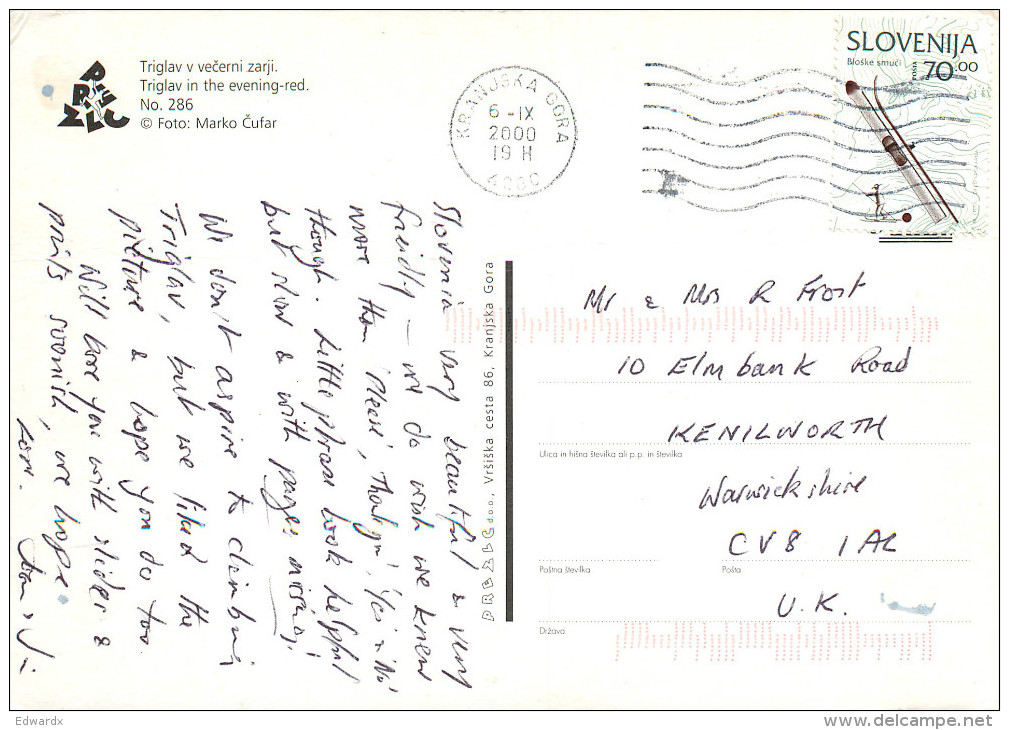 Triglav v večerni zarji.
Triglav in the evening-red.
No. 286
© Foto: Marko Čufar
PREZLC
KRANJSKA GORA
6-IX
2000
19 H
4280
SLOVENIJA
Bloške smuči
POŠTA
70.00
Slovenia very beautiful & very
friendly – we do wish we knew
more than 'please', 'thankyou', 'Yes & No'
though. Little phrase book helpful
but slow & with pages missing!
We don't aspire to climbing
Triglav, but we liked the
picture & hope you do too.
Will bore you with slides &
prints soonish, we hope.
Love.
PREZLC d.o.o., Vršiška cesta 86, Kranjska Gora
Mr & Mrs R Frost
10 Elmbank Road
KENILWORTH
Ulica in hišna številka ali p.p. in številka
Warwickshire
CV8 1AL
Poštna številka
Pošta
U.K.
Država
Edwardx
delcampe.net